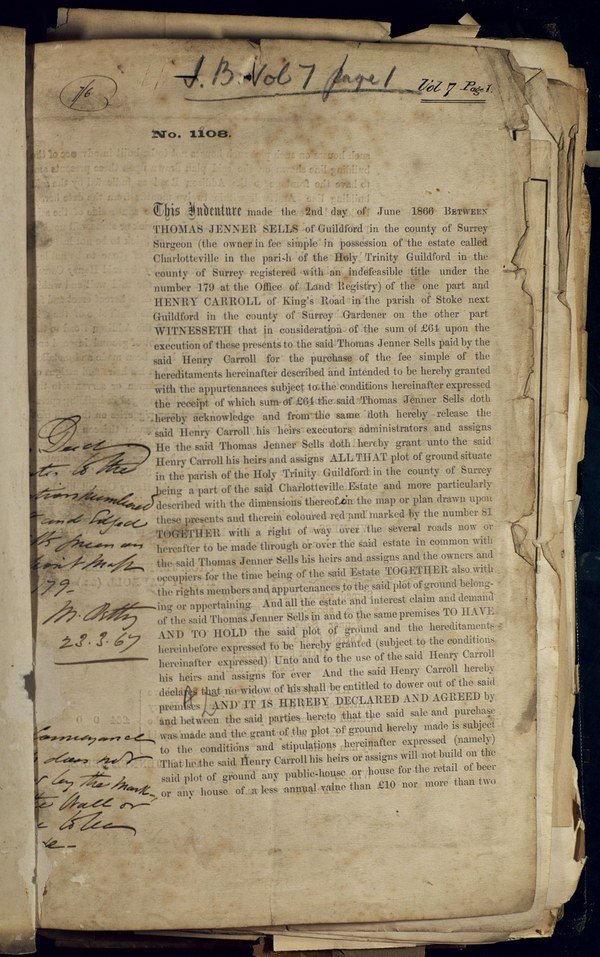 I. B. Vol 7 page 1
Vol 7 Page 1.
7/6
No. 1108.
This Indenture made the 2nd day of June 1866 BETWEEN
THOMAS JENNER SELLS of Guildford in the county of Surrey
Surgeon (the owner in fee simple in possession of the estate called
Charlotteville in the parish of the Holy Trinity Guildford in the
county of Surrey registered with an indefeasible title under the
number 179 at the Office of Land Registry) of the one part and
HENRY CARROLL of King's Road in the parish of Stoke next
Guildford in the county of Surrey Gardener on the other part
WITNESSETH that in consideration of the sum of £64 upon the
execution of these presents to the said Thomas Jenner Sells paid by the
said Henry Carroll for the purchase of the fee simple of the
hereditaments hereinafter described and intended to be hereby granted
with the appurtenances subject to the conditions hereinafter expressed
the receipt of which sum of £64 the said Thomas Jenner Sells doth
hereby acknowledge and from the same doth hereby release the
said Henry Carroll his heirs executors administrators and assigns
He the said Thomas Jenner Sells doth hereby grant unto the said
Henry Carroll his heirs and assigns ALL THAT plot of ground situate
in the parish of the Holy Trinity Guildford in the county of Surrey
being a part of the said Charlotteville Estate and more particularly
described with the dimensions thereof in the map or plan drawn upon
these presents and therein coloured red and marked by the number 81
TOGETHER with a right of way over the several roads now or
hereafter to be made through or over the said estate in common with
the said Thomas Jenner Sells his heirs and assigns and the owners and
occupiers for the time being of the said Estate TOGETHER also with
the rights members and appurtenances to the said plot of ground belong-
ing or appertaining And all the estate and interest claim and demand
of the said Thomas Jenner Sells in and to the same premises TO HAVE
AND TO HOLD the said plot of ground and the hereditaments
hereinbefore expressed to be hereby granted (subject to the conditions
hereinafter expressed) Unto and to the use of the said Henry Carroll
his heirs and assigns for ever And the said Henry Carroll hereby
declares that no widow of his shall be entitled to dower out of the said
premises AND IT IS HEREBY DECLARED AND AGREED by
and between the said parties hereto that the said sale and purchase
was made and the grant of the plot of ground hereby made is subject
to the conditions and stipulations hereinafter expressed (namely)
That he the said Henry Carroll his heirs or assigns will not build on the
said plot of ground any public-house or house for the retail of beer
or any house of a less annual value than £10 nor more than two
Deed
to the
numbered
and Edged
green on
Map
179-
23.3.67
Conveyance
does not
by the mark
Wall or